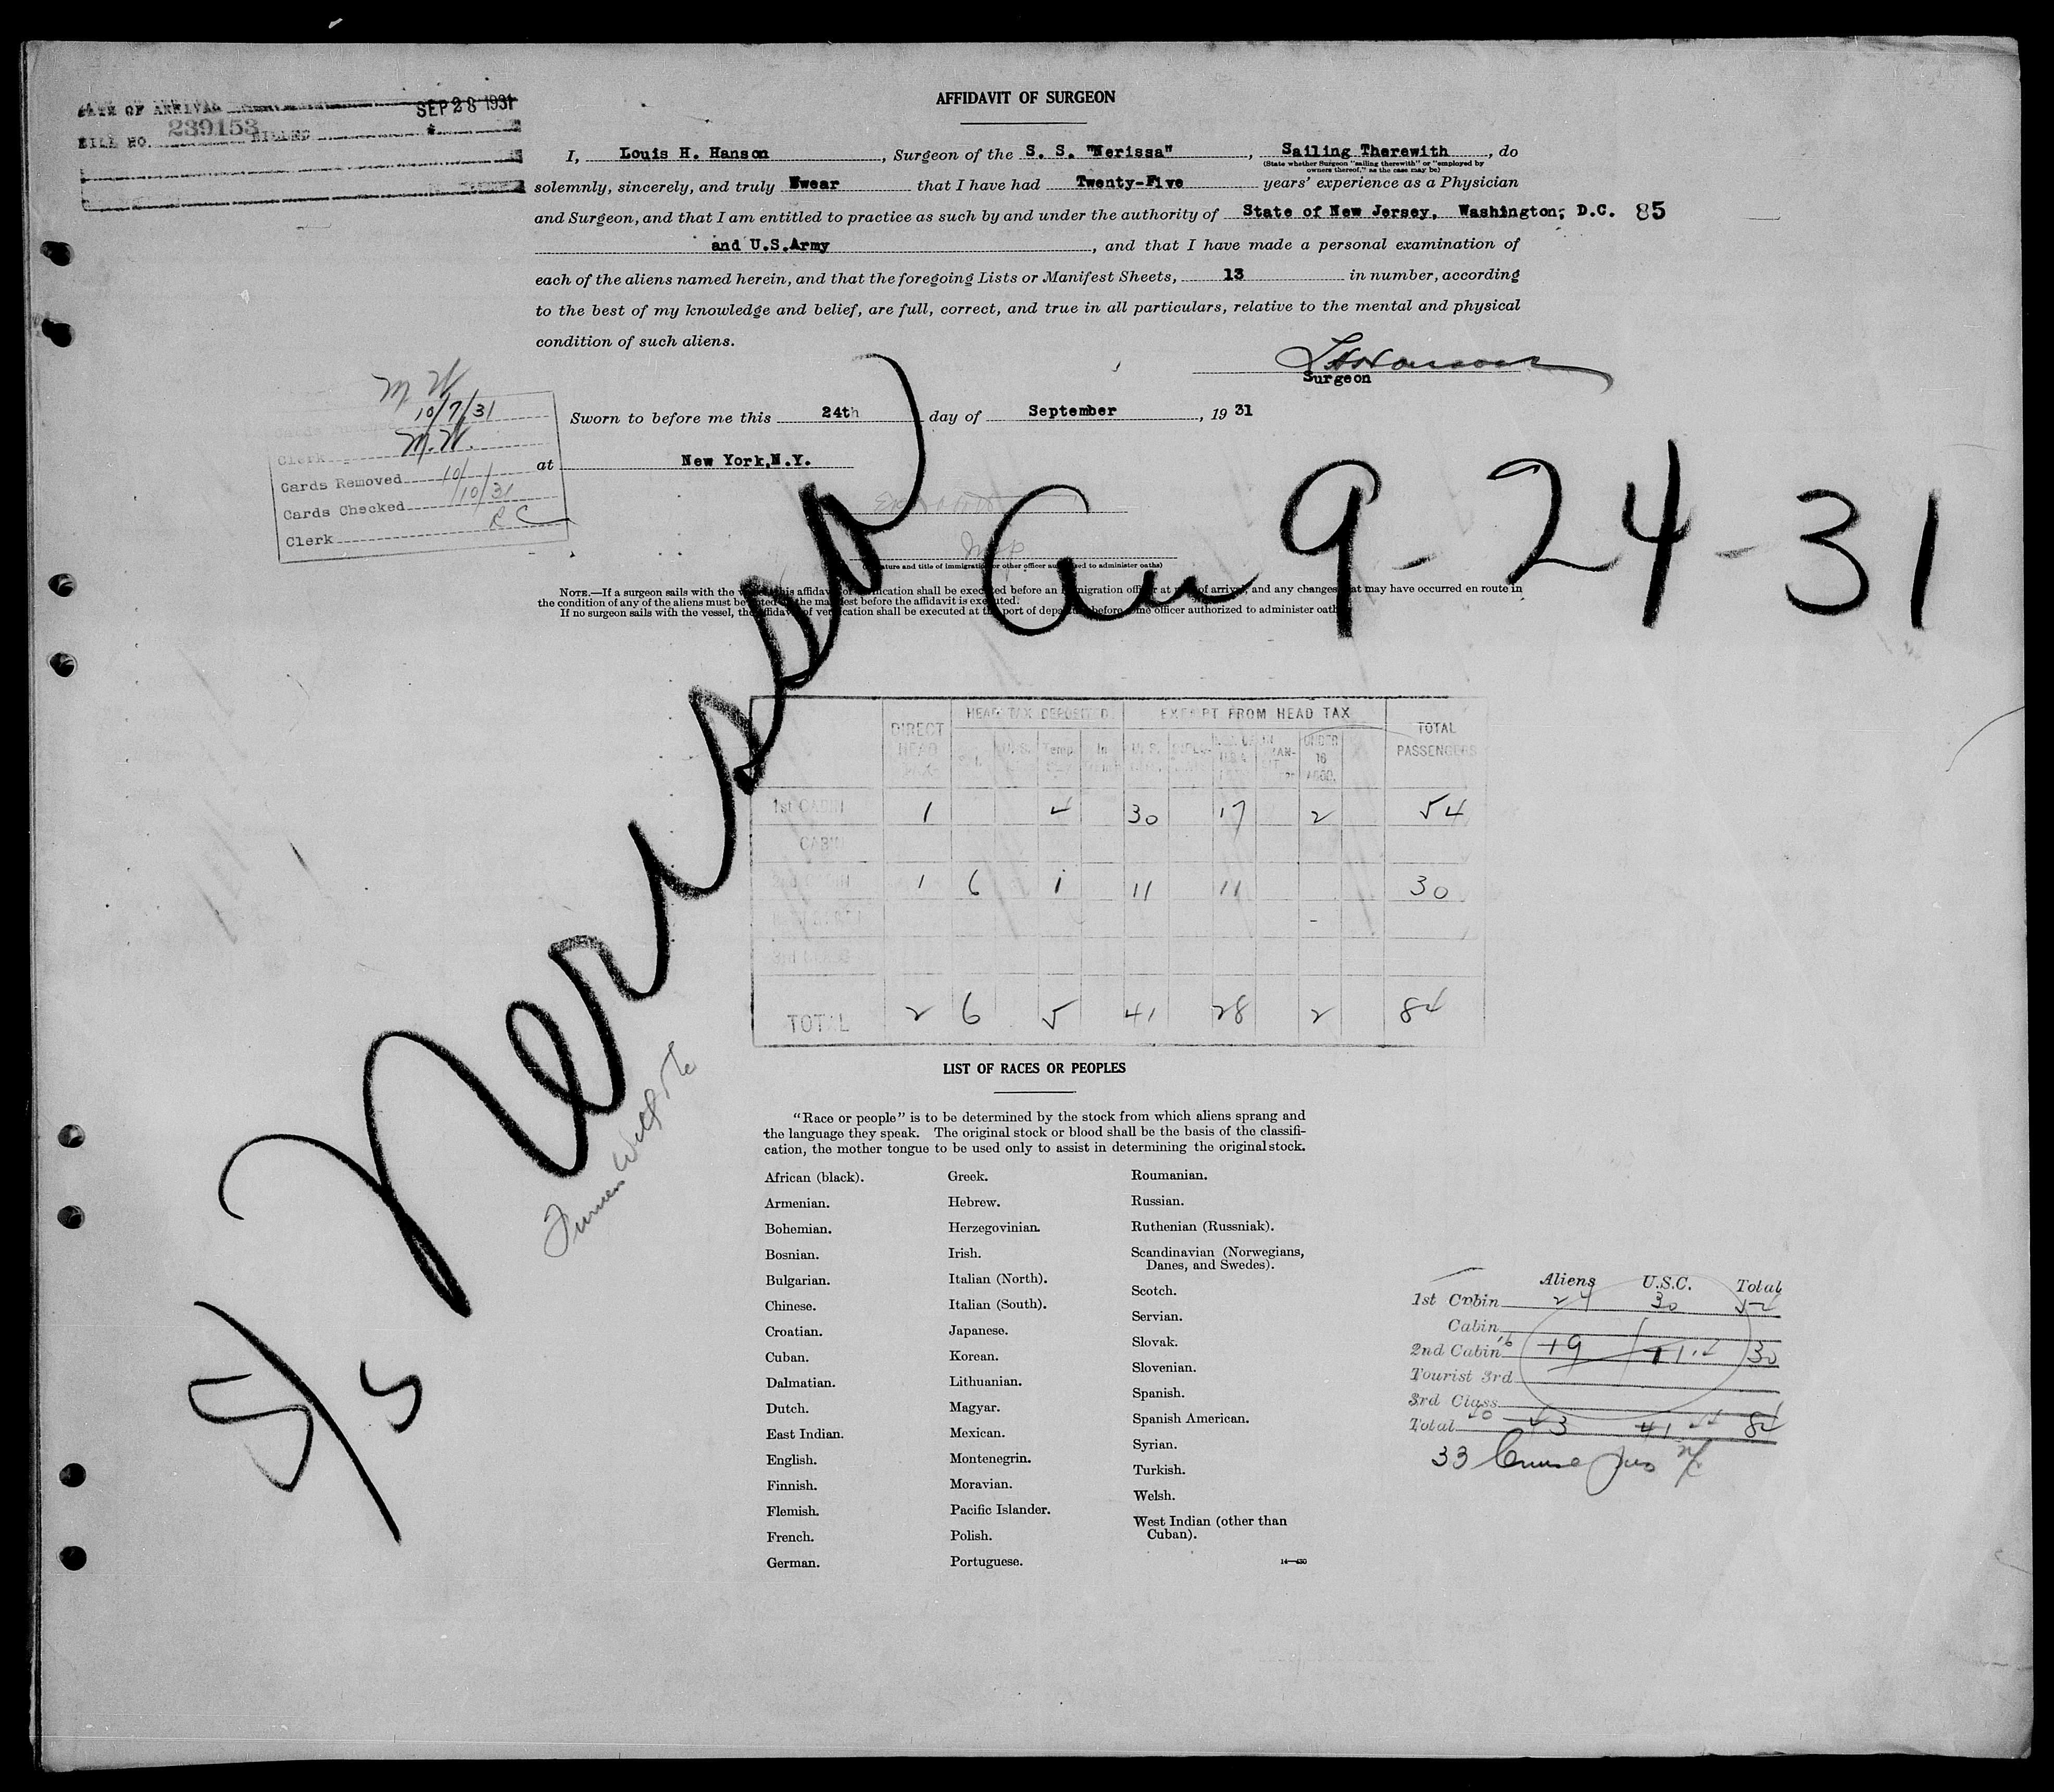 DATE OF ARRIVAL SEP 28 1931
BILL NO. 239153 BILLED
AFFIDAVIT OF SURGEON
I, Louis H. Hanson, Surgeon of the S. S. "Nerissa", Sailing Therewith, do
(State whether Surgeon "sailing therewith" or "employed by
owners thereof," as the case may be)
solemnly, sincerely, and truly Swear that I have had Twenty-Five years' experience as a Physician
and Surgeon, and that I am entitled to practice as such by and under the authority of State of New Jersey, Washington, D.C. 85
and U.S.Army, and that I have made a personal examination of
each of the aliens named herein, and that the foregoing Lists or Manifest Sheets, 13 in number, according
to the best of my knowledge and belief, are full, correct, and true in all particulars, relative to the mental and physical
condition of such aliens.
L H Hanson
Surgeon
Sworn to before me this 24th day of September, 19 31
at New York, N.Y.
M W
10/7/31
Cards Punched
Clerk M.W.
Cards Removed 10/
Cards Checked 10/31
Clerk R C
(Signature and title of immigration or other officer authorized to administer oaths)
S/S Nerissa Arr 9-24-31
NOTE.—If a surgeon sails with the vessel, this affidavit of verification shall be executed before an immigration officer at port of arrival, and any changes that may have occurred en route in
the condition of any of the aliens must be noted on the manifest before the affidavit is executed.
If no surgeon sails with the vessel, the affidavit of verification shall be executed at the port of departure before some officer authorized to administer oaths.
HEAD TAX DEPOSITED EXEMPT FROM HEAD TAX
DIRECT HEAD TAX Temp. In U.S. U.S. UNDER 16 ACCO. TOTAL PASSENGERS
1st CABIN 1 4 30 17 2 54
CABIN
2nd CABIN 1 6 1 11 11 30
3rd CLASS
TOTAL 2 6 5 41 28 2 84
Furness Withy &
LIST OF RACES OR PEOPLES
"Race or people" is to be determined by the stock from which aliens sprang and
the language they speak. The original stock or blood shall be the basis of the classifi-
cation, the mother tongue to be used only to assist in determining the original stock.
African (black).
Armenian.
Bohemian.
Bosnian.
Bulgarian.
Chinese.
Croatian.
Cuban.
Dalmatian.
Dutch.
East Indian.
English.
Finnish.
Flemish.
French.
German.
Greek.
Hebrew.
Herzegovinian.
Irish.
Italian (North).
Italian (South).
Japanese.
Korean.
Lithuanian.
Magyar.
Mexican.
Montenegrin.
Moravian.
Pacific Islander.
Polish.
Portuguese.
Roumanian.
Russian.
Ruthenian (Russniak).
Scandinavian (Norwegians,
Danes, and Swedes).
Scotch.
Servian.
Slovak.
Slovenian.
Spanish.
Spanish American.
Syrian.
Turkish.
Welsh.
West Indian (other than
Cuban).
14—430
Aliens U.S.C. Total
1st Cabin 24 30 54
Cabin
2nd Cabin 16 19 11 14 30
Tourist 3rd
3rd Class
Total 40 43 41 44 84
33 Cruise